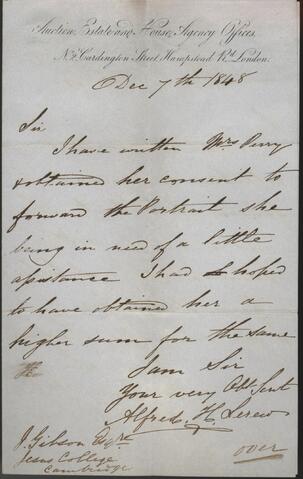 Auction, Estate and House, Agency Offices,
Nº Cardington Street Hampstead Rd. London.
Dec 7th 1848
Sir
I have written Mrs Perry
& obtained her consent to
forward the Portrait she
being in need of a little
assistance I had hoped
to have obtained her a
higher sum for the same
I am Sir
Your very Obt Sevt
Alfred H. Lerew
J. Gibson Esqre
Jesus College
Cambridge
over